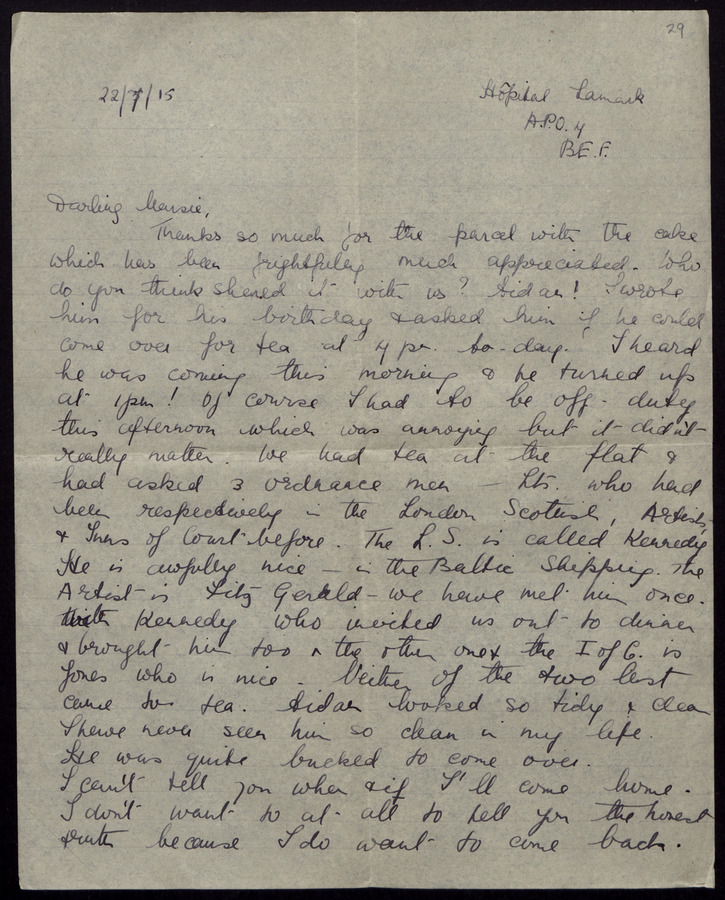 29
22/7/15
Hôpital Lamark
A.P.O. 4
B.E.F.
Darling
Thanks so much for the parcel with the cake
which has been frightfully much appreciated. Who
do you think shared it with us? Aidan! I wrote
him for his birthday & asked him if he could
come over for tea at 4 pm. to-day. I heard
he was coming this morning & he turned up
at 1pm! Of course I had to be off-duty
this afternoon which was annoying but it didn't
really matter. We had tea at the flat &
had asked 3 ordnance men – Lts. who had
been respectively in the London Scottish, Artists,
& Inns of Court before. The L.S. is called Kennedy
He is awfully nice – in the Baltic Shipping. The
Artist is Fitz Gerald – we have met him once.
with Kennedy who invited us out to dinner
& brought him too & the other one the I of C. is
Jones who is nice. Neither of the two last
came to tea. Aidan looked so tidy & clean
I have never seen him so clean in my life.
He was quite bucked to come over.
I can't tell you when & if I'll come home.
I don't want to at all to tell you the honest
truth because I do want to come back.